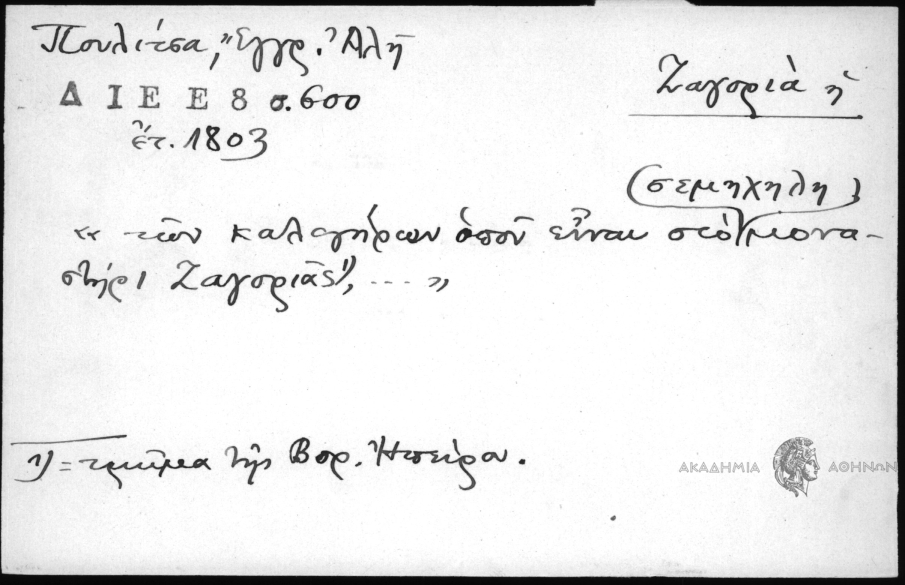 Πουλίτσα, "Εγγρ. Ἀλῆ
Δ Ι Ε Ε 8 σ. 600
ἔτ. 1803
Ζαγοριὰ ἡ
(σεμηχηλη)
« τῶν καλογήρων ὁποῦ εἶναι στὸ μονα-
στήρι Ζαγοριᾶς¹⁾, .... »
1) = τμῆμα τῆς Βορ. Ἠπείρου.
ΑΚΑΔΗΜΙΑ ΑΘΗΝΩΝ